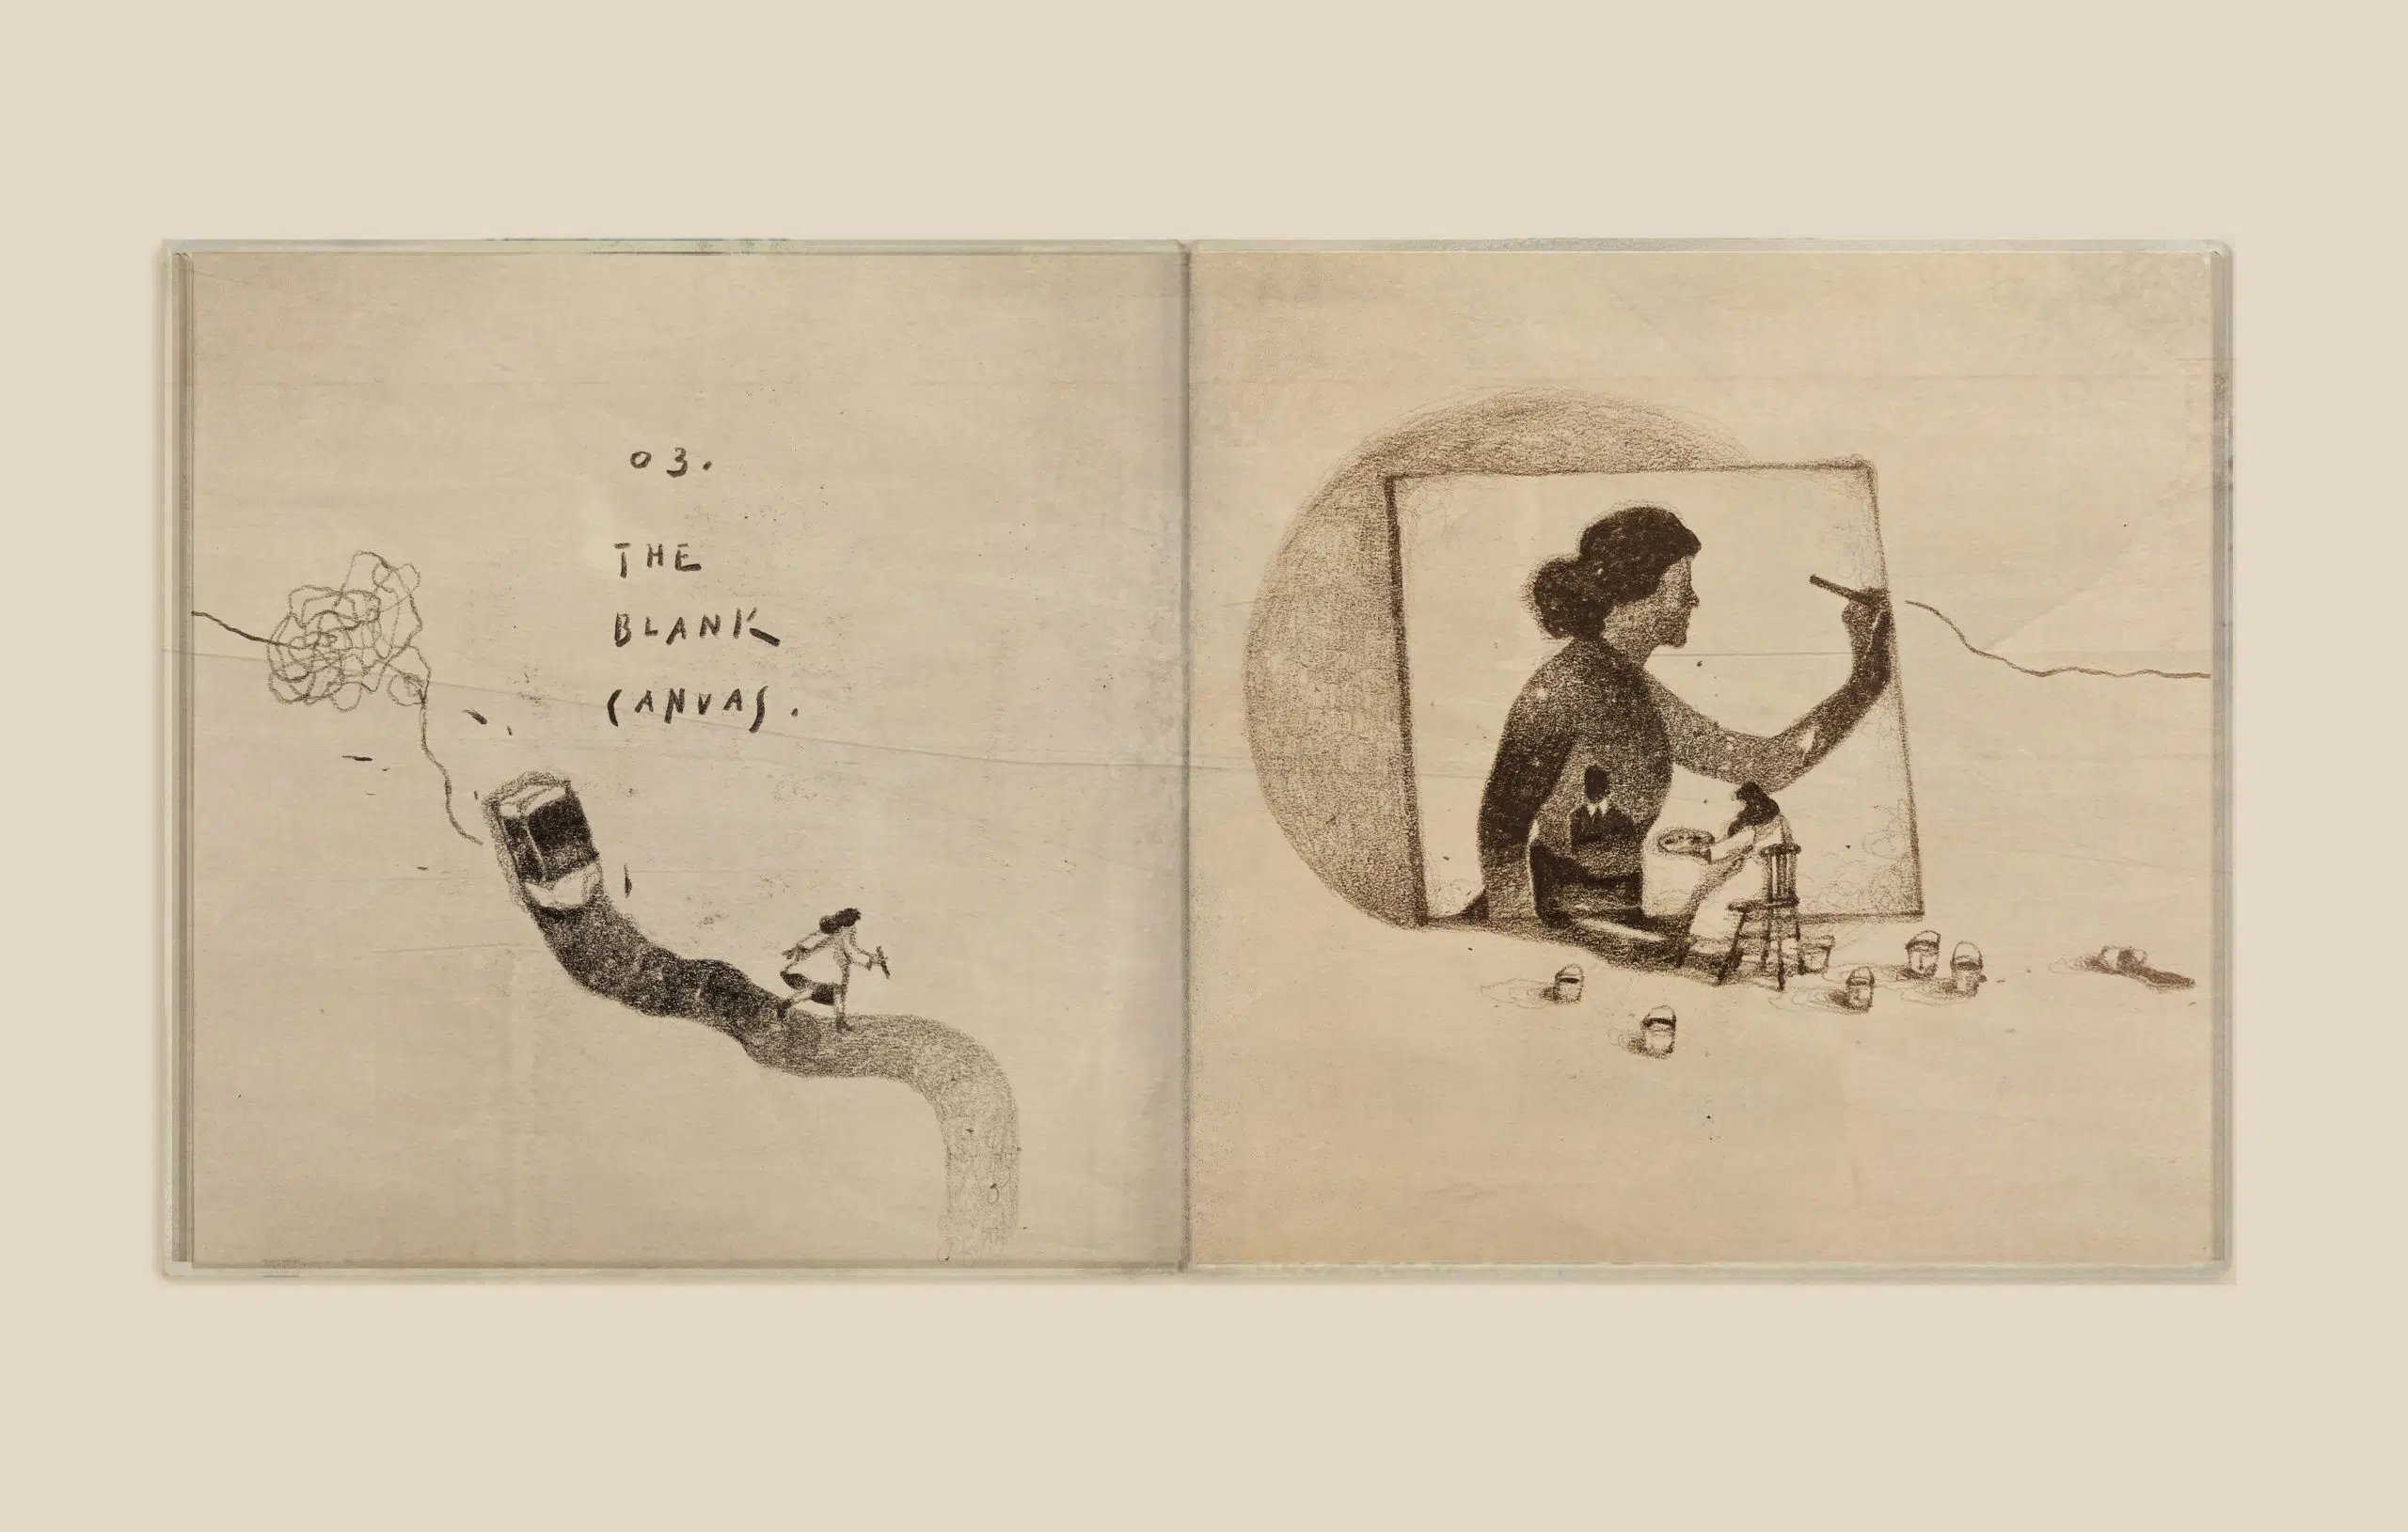 03.
THE
BLANK
CANVAS.